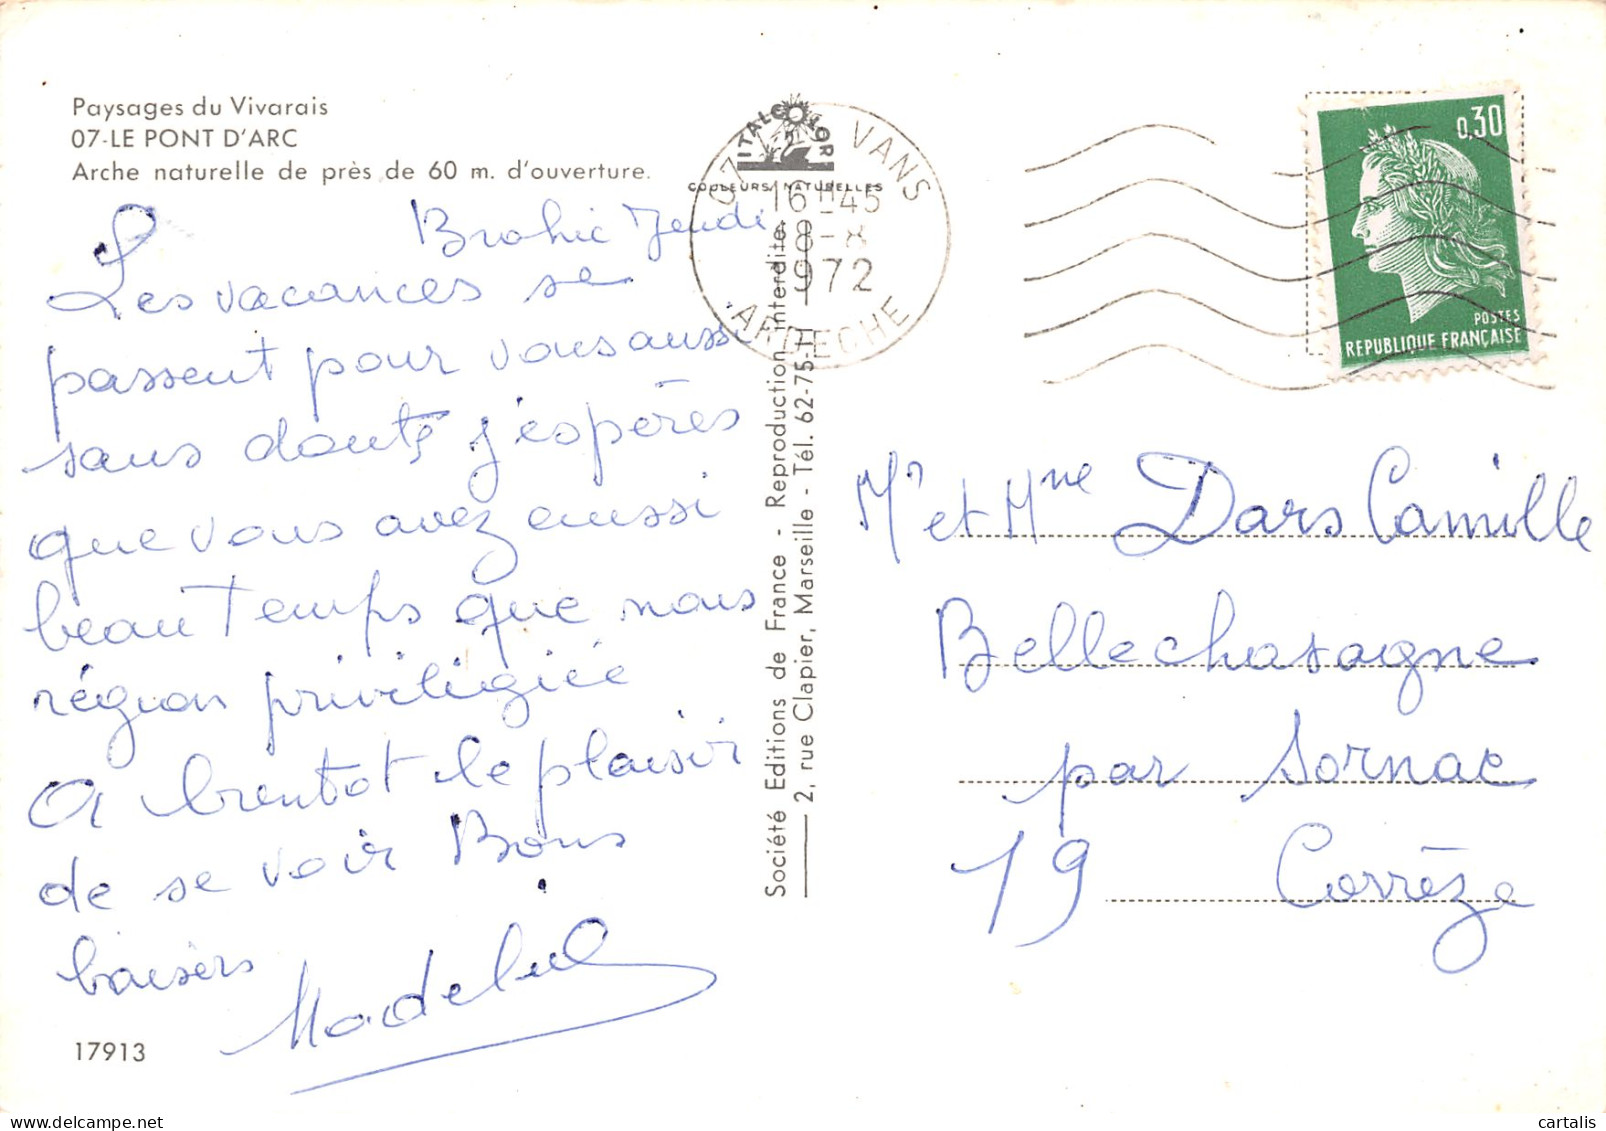 Paysages du Vivarais
07-LE PONT D'ARC
Arche naturelle de près de 60 m. d'ouverture.
Brahic Jeudi
Les vacances se
passent pour vous aussi
sans doute j'espères
que vous avez aussi
beau temps que nous
région priviligiée
A bientot le plaisir
de se voir Bons
baisers
17913
ITALCOLOR
COULEURS NATURELLES
07 VANS
16H45
8-8
1972
ARDECHE
Société Editions de France - Reproduction interdite.
2, rue Clapier, Marseille - Tél. 62-75-11
0,30
POSTES
REPUBLIQUE FRANÇAISE
Mr et Mme Dars Camille
Bellechasagne
par Sornac
19 Corrèze
cartalis